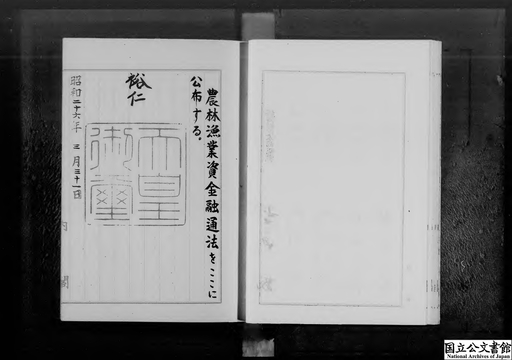 農林漁業資金融通法をここに
公布する。
裕仁
天皇
御璽
昭和二十六年三月三十一日
内閣
国立公文書館
National Archives of Japan